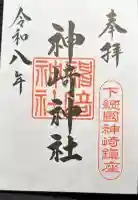 奉拝
下総國神崎鎮座
神崎神社
令和八年